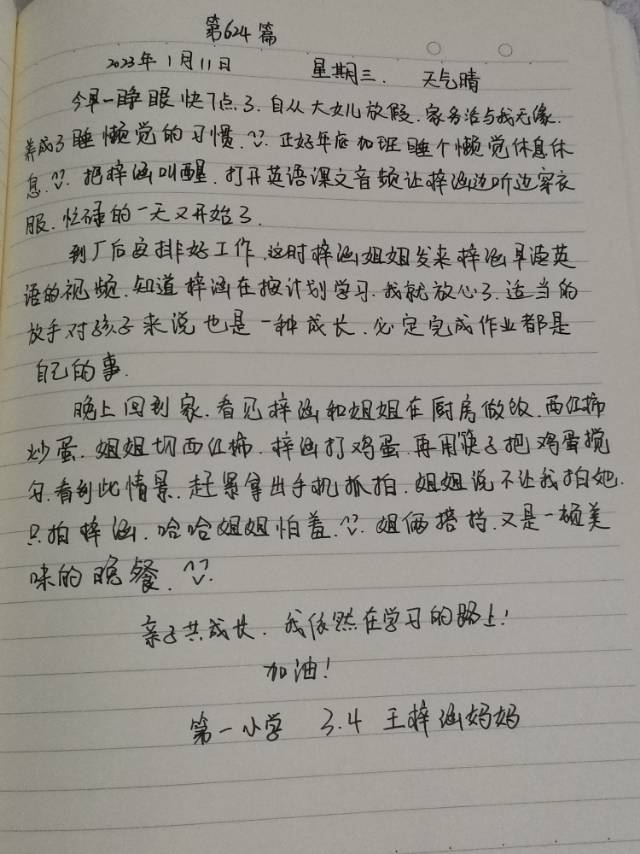 第624篇
2023年1月11日 星期三. 天气晴
今早一睁眼快7点了.自从大女儿放假.家务活与我无缘.
养成了睡懒觉的习惯.^^ 正好年底加班睡个懒觉休息休
息.^^ 把梓涵叫醒.打开英语课文音频让梓涵边听边穿衣
服.忙碌的一天又开始了.
到厂后安排好工作.这时梓涵姐姐发来梓涵早读英
语的视频.知道梓涵在按计划学习.我就放心了.适当的
放手对孩子来说也是一种成长.必定完成作业都是
自己的事.
晚上回到家.看见梓涵和姐姐在厨房做饭.西红柿
炒蛋.姐姐切西红柿.梓涵打鸡蛋.再用筷子把鸡蛋搅
匀.看到此情景.赶紧拿出手机抓拍.姐姐说不让我拍她.
只拍梓涵.哈哈姐姐怕羞.^^ 姐俩搭挡.又是一顿美
味的晚餐.^^
亲子共成长.我依然在学习的路上!
加油!
第一小学 3.4 王梓涵妈妈